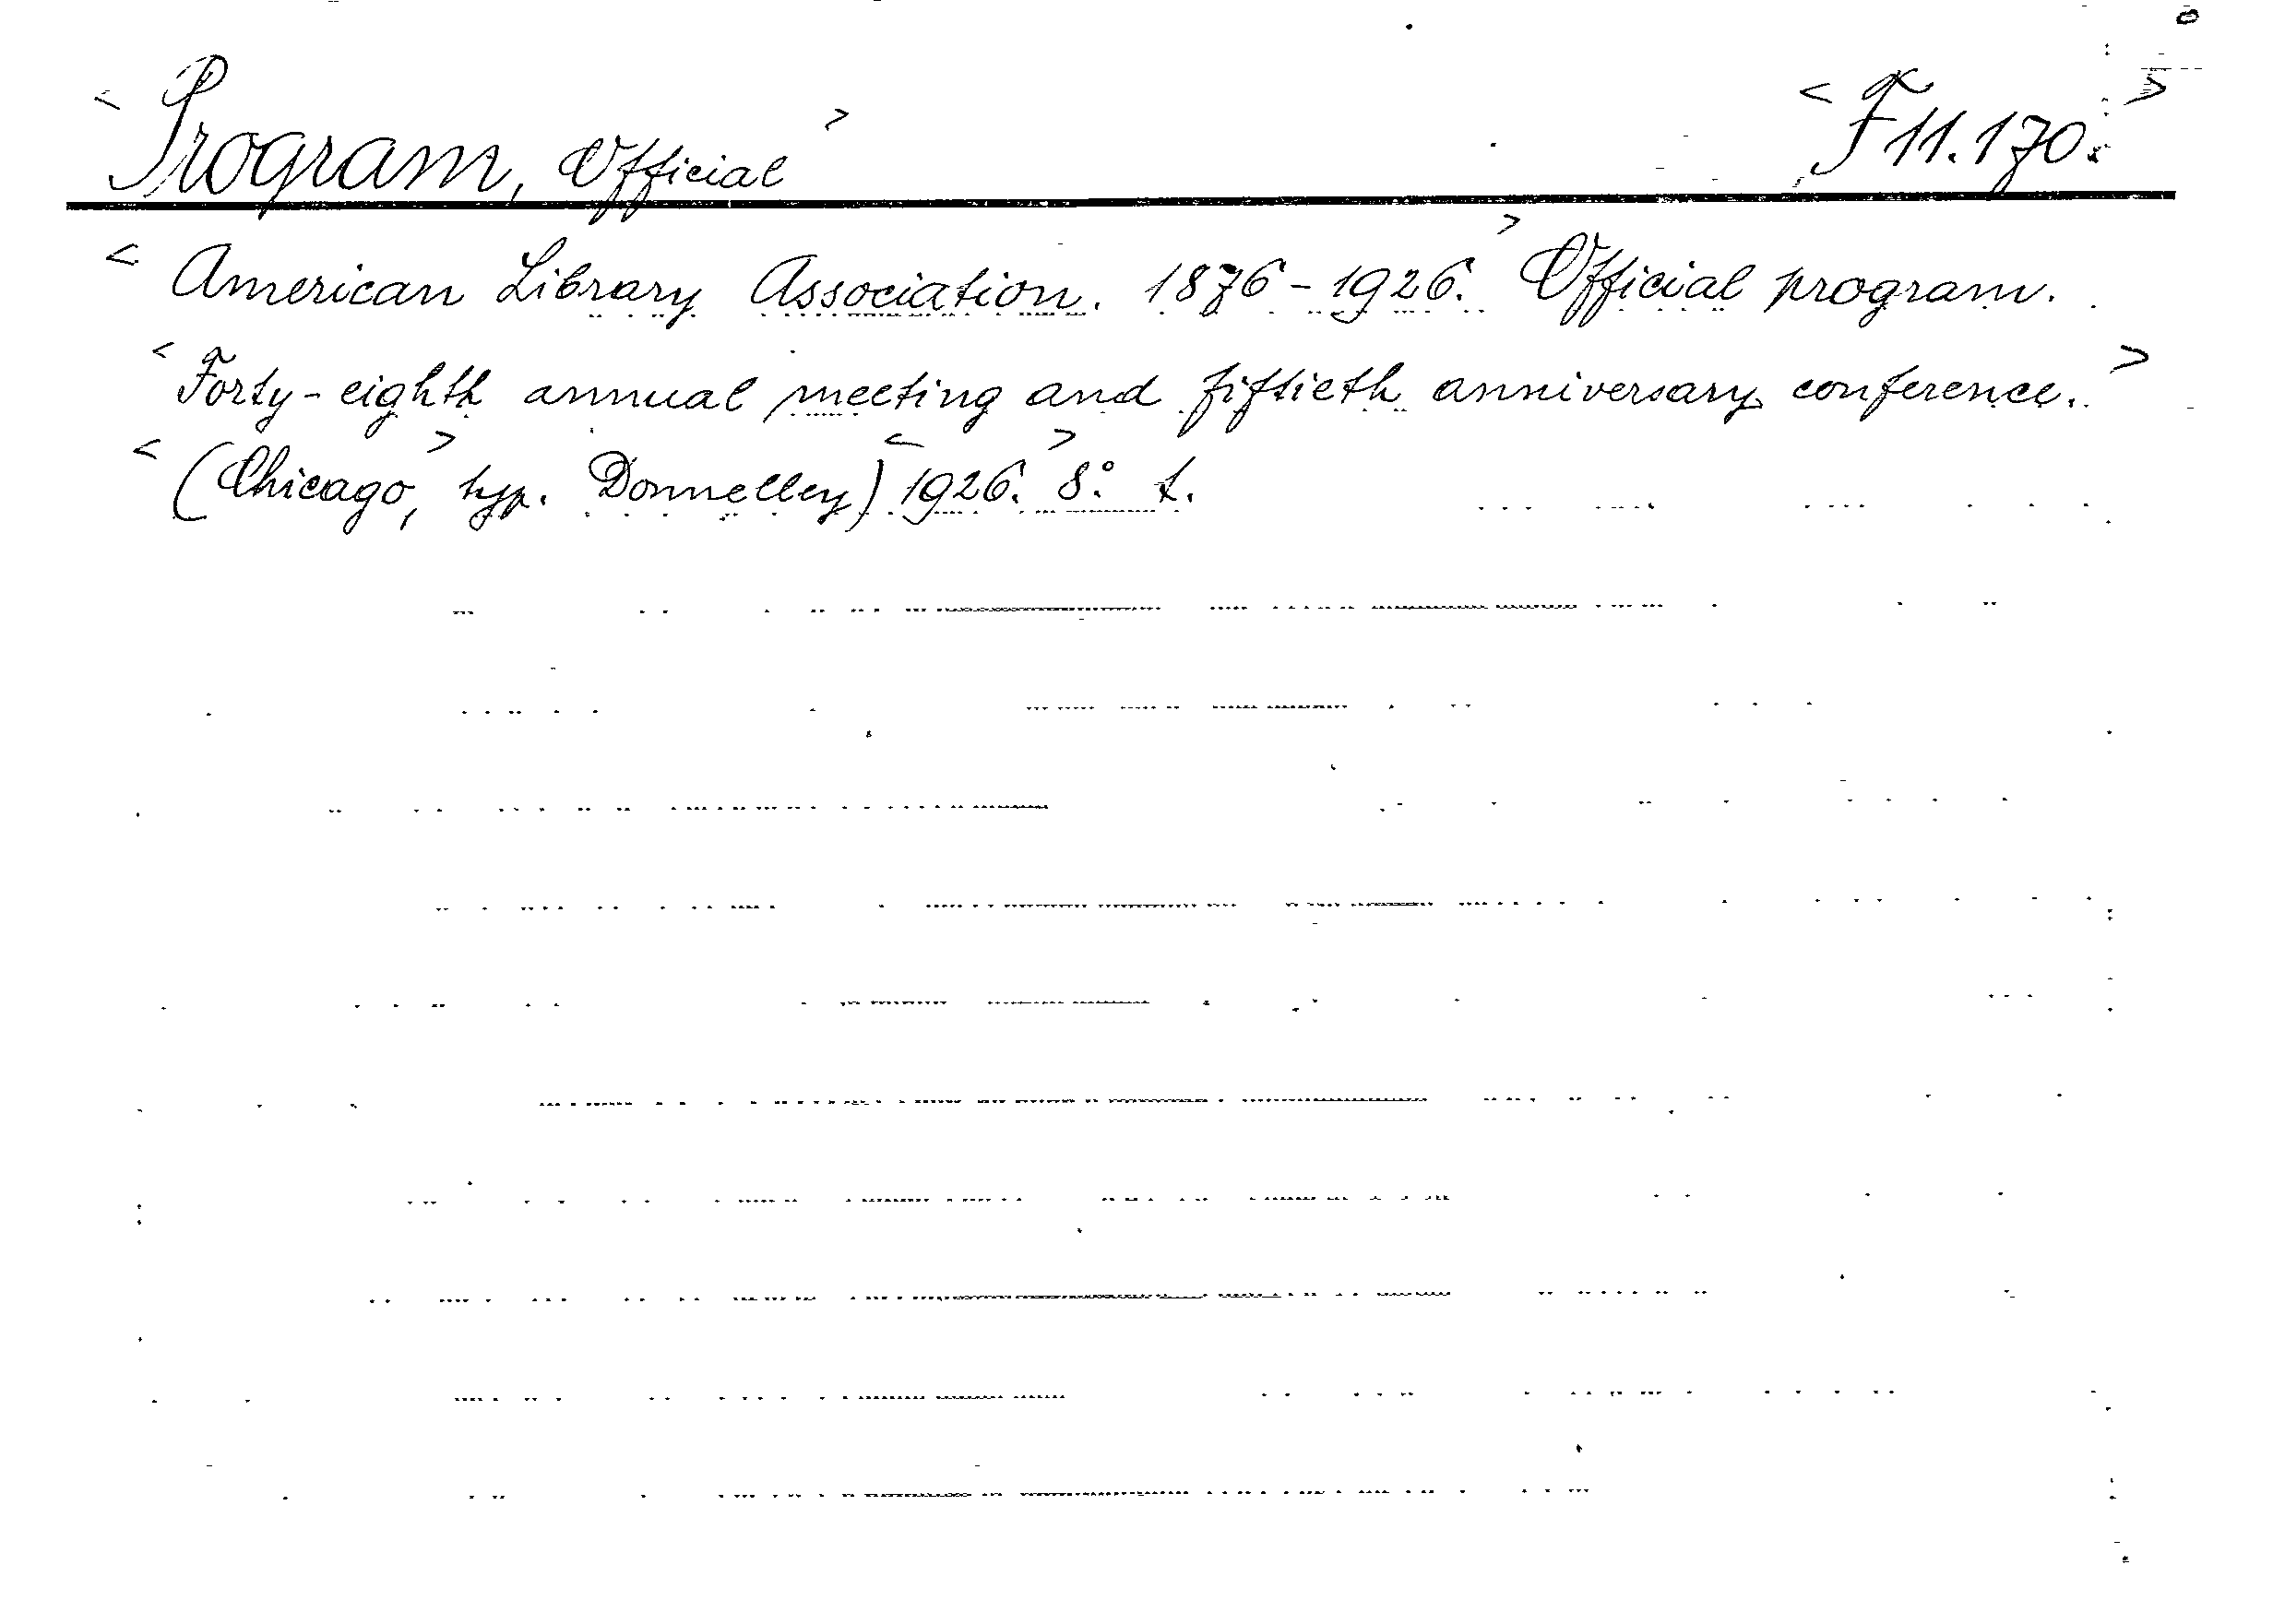 < Program, Official > < F 11.170. >
< American Library Association. 1876-1926. > Official program.
< Forty-eighth annual meeting and fiftieth anniversary conference. >
< (Chicago, > typ. Donnelley) < 1926. > 8° t.